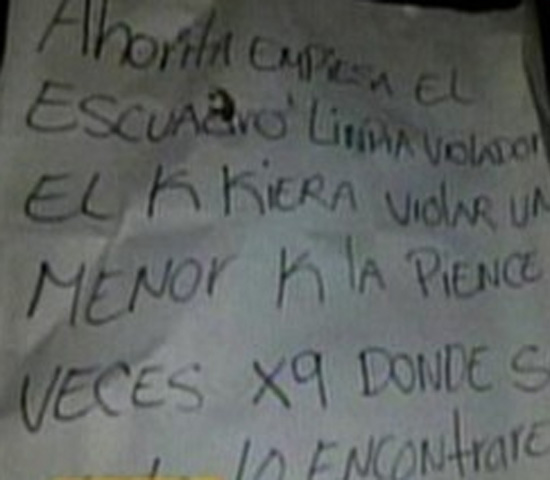 Ahorita EMPIESA EL
ESCUAdrO' LiMPIA VIOLADOR
EL K KiERA VIOlAR UN
MENOr K lA PiENCE
VECES X9 DONDE S
lO ENCONtrARE